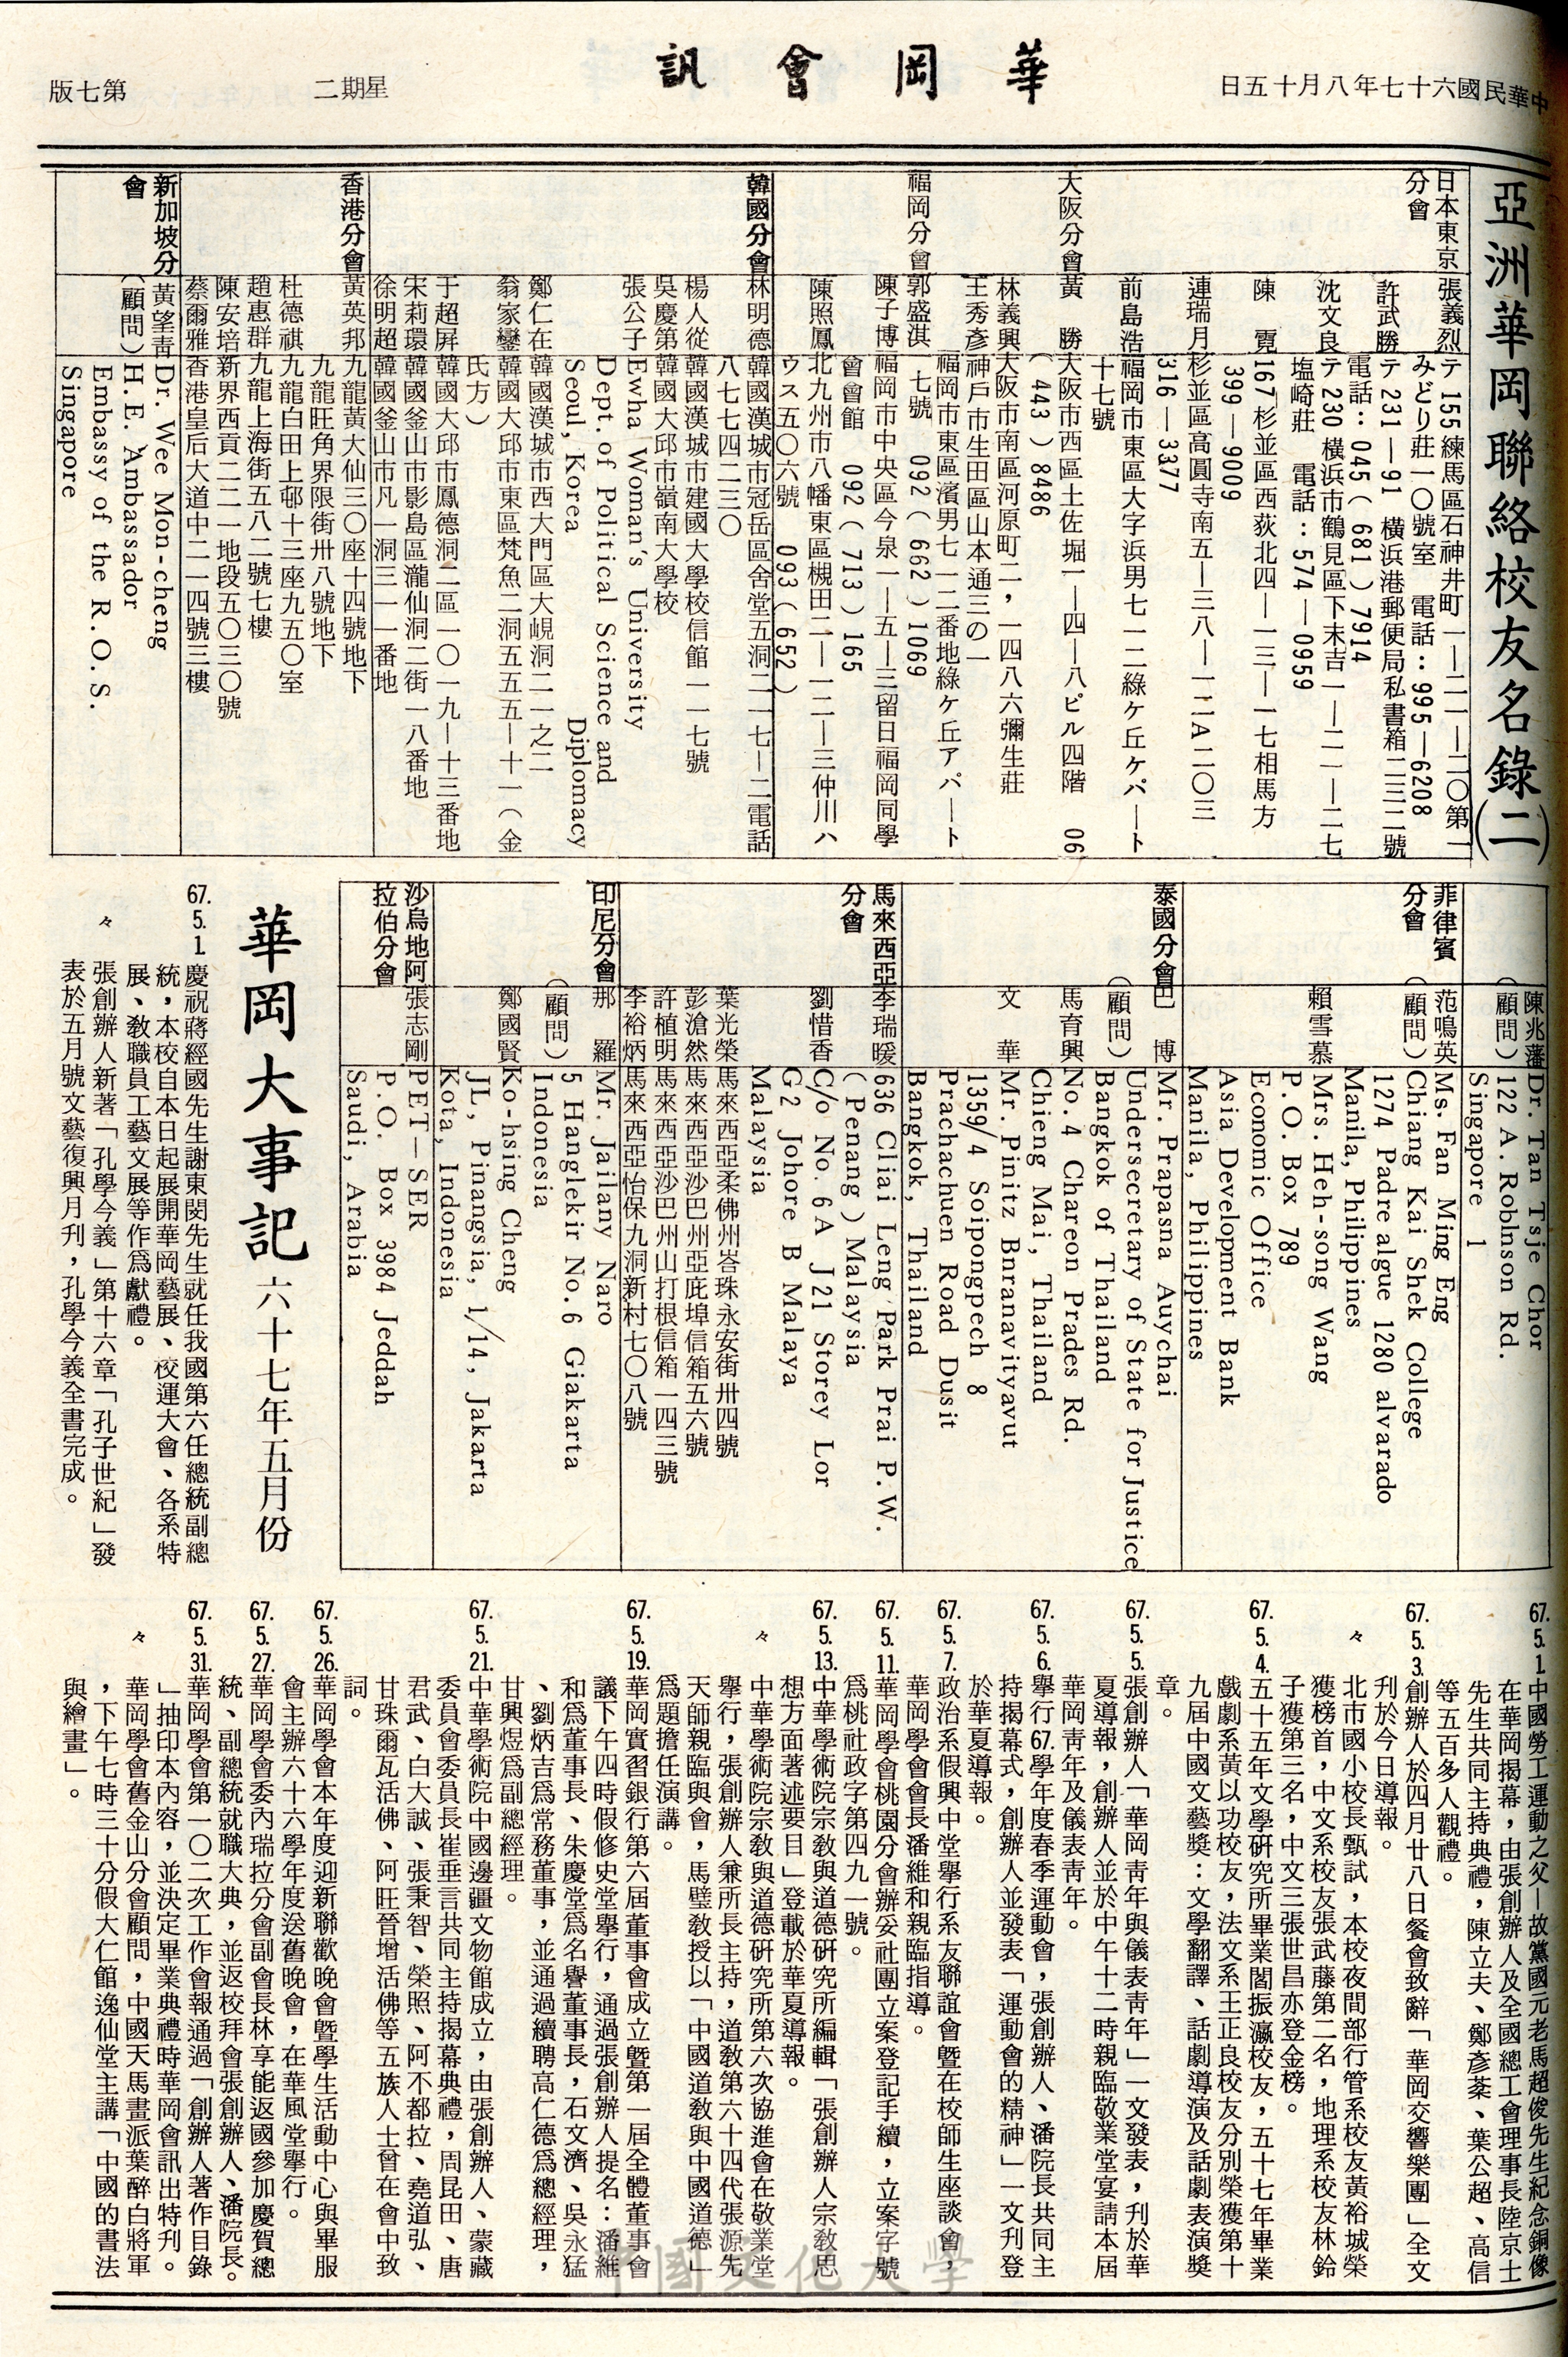 中華民國六十七年八月十五日
華岡會訊
星期二
第七版
亞洲華岡聯絡校友名錄(二)
日本東京分會
張義烈
〒155練馬區石神井町一—二一—二〇第二
みどり莊一〇號室 電話：995—6208
許武勝
〒231—91 橫浜港郵便局私書箱二三二號
電話：045(681)7914
沈文良
〒230橫浜市鶴見區下末吉一—二一—二七
塩崎莊 電話：574—0959
陳 霓
167杉並區西荻北四—一三—一七相馬方
399—9009
連瑞月
杉並區高圓寺南五—三八—一二A二〇三
316—3377
前島浩
福岡市東區大字浜男七一二綠ケ丘ケパート
十七號
大阪分會
黃 勝
大阪市西區土佐堀一—四—八ビル四階 06
(443)8486
林義興
大阪市南區河原町二，一四八六彌生莊
王秀彥
神戶市生田區山本通三の一
福岡分會
郭盛淇
福岡市東區濱男七一二番地綠ケ丘アパート
七號 092(662)1069
陳子博
福岡市中央區今泉一—五—三留日福岡同學
會會館 092(713)165
陳照鳳
北九州市八幡東區槻田二—一二—三仲川ハ
ウス五〇六號 093(652)
韓國分會
林明德
韓國漢城市冠岳區舍堂五洞二一七—二電話
八七七四二三〇
楊人從
韓國漢城市建國大學校信館一一七號
吳慶第
韓國大邱市嶺南大學校
張公子
Ewha Woman's University
Dept. of Political Science and Diplomacy
Seoul, Korea
鄭仁在
韓國漢城市西大門區大峴洞二一之二
翁家鑾
韓國大邱市東區梵魚二洞五五五—十一(金
氏方)
于超屏
韓國大邱市鳳德洞二區一〇一九—十三番地
宋莉環
韓國釜山市影島區瀧仙洞二街一八番地
徐明超
韓國釜山市凡一洞三一一番地
香港分會
黃英邦
九龍黃大仙三〇座十四號地下
九龍旺角界限街卅八號地下
杜德祺
九龍白田上邨十三座九五〇室
趙惠群
九龍上海街五八二號七樓
陳安培
新界西貢二二一地段五〇三〇號
蔡爾雅
香港皇后大道中二一四號三樓
新加坡分會
黃望青
(顧問)
Dr. Wee Mon-cheng
H.E. Ambassador
Embassy of the R.O.S.
Singapore
陳兆藩
(顧問)
Dr. Tan Tsje Chor
122 A. Roblnson Rd.
Singapore 1
菲律賓分會
范鳴英
(顧問)
Ms. Fan Ming Eng
Chiang Kai Shek College
1274 Padre algue 1280 alvarado
Manila, Philippines
賴雪慕
Mrs. Heh-song Wang
P.O. Box 789
Economic Office
Asia Development Bank
Manila, Philippines
泰國分會
巴 博
(顧問)
Mr. Prapasna Auychai
Undersecretary of State for Justice
Bangkok of Thailand
馬育興
No. 4 Chareon Prades Rd.
Chieng Mai, Thailand
文 華
Mr. Pinitz Bnranavityavut
1359/4 Soipongpech 8
Prachachuen Road Dusit
Bangkok, Thailand
馬來西亞分會
李瑞暖
636 Cliai Leng Park Prai P.W.
(Penang) Malaysia
劉惜香
C/o No. 6A J21 Storey Lor
G2 Johore B Malaya
Malaysia
葉光榮
馬來西亞柔佛州峇珠永安街卅四號
彭滄然
馬來西亞沙巴州亞庇埠信箱五六號
許植明
馬來西亞沙巴州山打根信箱一四三號
李裕炳
馬來西亞怡保九洞新村七〇八號
印尼分會
那 羅
(顧問)
Mr. Jailany Naro
5 Hanglekir No. 6 Giakarta
Indonesia
鄭國賢
Ko-hsing Cheng
JL, Pinangsia, 1/14, Jakarta
Kota, Indonesia
沙烏地阿拉伯分會
張志剛
PET—SER
P.O. Box 3984 Jeddah
Saudi, Arabia
華岡大事記 六十七年五月份
67.5.1.慶祝蔣經國先生謝東閔先生就任我國第六任總統副總
統，本校自本日起展開華岡藝展、校運大會、各系特
展、教職員工藝文展等作爲獻禮。
々 張創辦人新著「孔學今義」第十六章「孔子世紀」發
表於五月號文藝復興月刋，孔學今義全書完成。
67.5.1.中國勞工運動之父—故黨國元老馬超俊先生紀念銅像
在華岡揭幕，由張創辦人及全國總工會理事長陸京士
先生共同主持典禮，陳立夫、鄭彥棻、葉公超、高信
等五百多人觀禮。
67.5.3.創辦人於四月廿八日餐會致辭「華岡交響樂團」全文
刋於今日導報。
々 北市國小校長甄試，本校夜間部行管系校友黃裕城榮
獲榜首，中文系校友張武藤第二名，地理系校友林鈴
子獲第三名，中文三張世昌亦登金榜。
67.5.4.五十五年文學研究所畢業閣振瀛校友，五十七年畢業
戲劇系黃以功校友，法文系王正良校友分別榮獲第十
九屆中國文藝獎：文學翻譯、話劇導演及話劇表演獎
章。
67.5.5.張創辦人「華岡青年與儀表青年」一文發表，刋於華
夏導報，創辦人並於中午十二時親臨敬業堂宴請本屆
華岡青年及儀表青年。
67.5.6.舉行67.學年度春季運動會，張創辦人、潘院長共同主
持揭幕式，創辦人並發表「運動會的精神」一文刋登
於華夏導報。
67.5.7.政治系假興中堂舉行系友聯誼會暨在校師生座談會，
華岡學會會長潘維和親臨指導。
67.5.11.華岡學會桃園分會辦妥社團立案登記手續，立案字號
爲桃社政字第四九一號。
67.5.13.中華學術院宗教與道德研究所編輯「張創辦人宗教思
想方面著述要目」登載於華夏導報。
々 中華學術院宗教與道德研究所第六次協進會在敬業堂
舉行，張創辦人兼所長主持，道教第六十四代張源先
天師親臨與會，馬璧教授以「中國道教與中國道德」
爲題擔任演講。
67.5.19.華岡實習銀行第六屆董事會成立暨第一屆全體董事會
議下午四時假修史堂舉行，通過張創辦人提名：潘維
和爲董事長、朱慶堂爲名譽董事長，石文濟、吳永猛
、劉炳吉爲常務董事，並通過續聘高仁德爲總經理，
甘興煜爲副總經理。
67.5.21.中華學術院中國邊疆文物館成立，由張創辦人、蒙藏
委員會委員長崔垂言共同主持揭幕典禮，周昆田、唐
君武、白大誠、張秉智、榮照、阿不都拉、堯道弘、
甘珠爾瓦活佛、阿旺晉增活佛等五族人士曾在會中致
詞。
67.5.26.華岡學會本年度迎新聯歡晚會暨學生活動中心與畢服
會主辦六十六學年度送舊晚會，在華風堂舉行。
67.5.27.華岡學會委內瑞拉分會副會長林享能返國參加慶賀總
統、副總統就職大典，並返校拜會張創辦人、潘院長。
67.5.31.華岡學會第一〇二次工作會報通過「創辦人著作目錄
」抽印本內容，並決定畢業典禮時華岡會訊出特刋。
々 華岡學會舊金山分會顧問，中國天馬畫派葉醉白將軍
，下午七時三十分假大仁館逸仙堂主講「中國的書法
與繪畫」。
中國文化大學